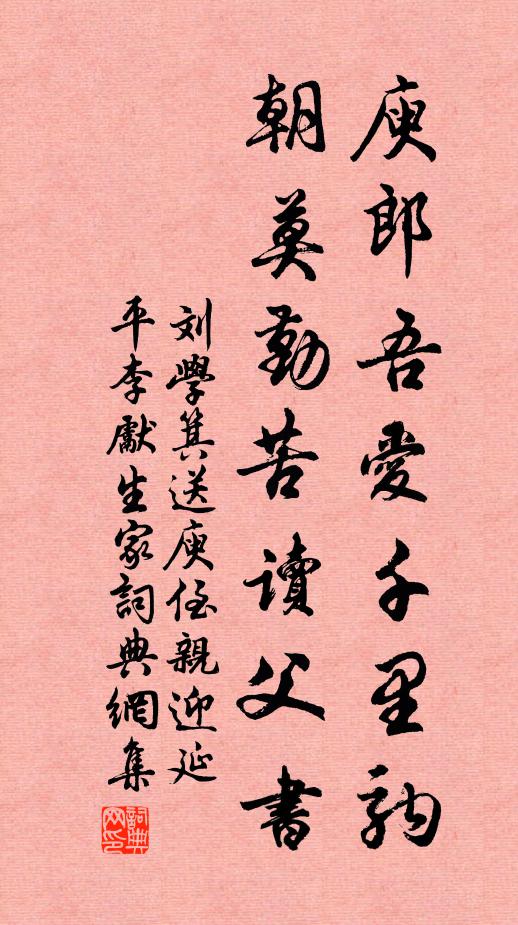 庾郎吾愛千里駒
朝莫勤苦讀父書
刘學箕送庾侄親迎延
平李獻生家詞典網集
詞典
网印